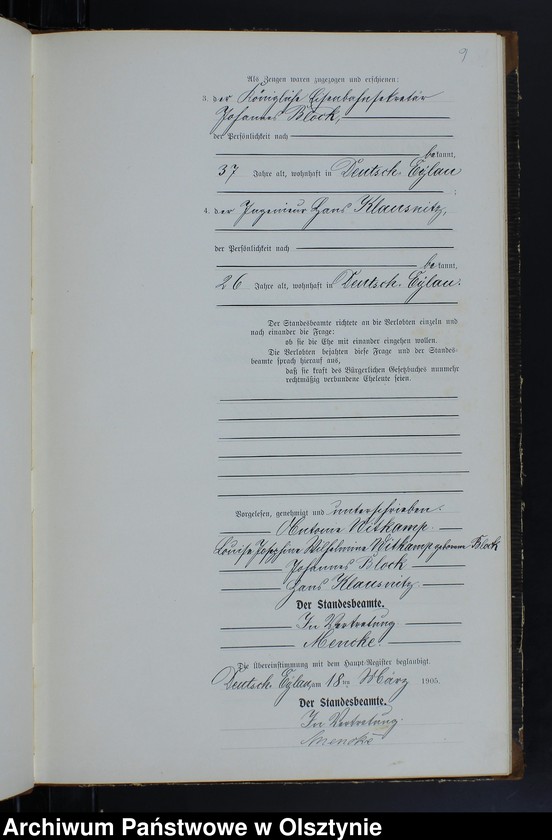 9
Als Zeugen waren zugezogen und erschienen:
3. der Königliche Eisenbahnsekretär
Johannes Block,
der Persönlichkeit nach
bekannt,
37 Jahre alt, wohnhaft in Deutsch. Eylau
;
4. der Ingenieur Hans Klausnitz,
der Persönlichkeit nach
bekannt,
26 Jahre alt, wohnhaft in Deutsch. Eylau.
Der Standesbeamte richtete an die Verlobten einzeln und
nach einander die Frage:
ob sie die Ehe mit einander eingehen wollen.
Die Verlobten bejahten diese Frage und der Standes-
beamte sprach hierauf aus,
daß sie kraft des Bürgerlichen Gesetzbuches nunmehr
rechtmäßig verbundene Eheleute seien.
Vorgelesen, genehmigt und unterschrieben:
Antome Witkamp.
Louise Josephine Wilhelmine Witkamp geborene Block
Johannes Block
Hans Klausnitz
Der Standesbeamte.
In Vertretung
Mencke.
Die Übereinstimmung mit dem Haupt-Register beglaubigt.
Deutsch. Eylau, am 18ten März 1905.
Der Standesbeamte.
In Vertretung.
Mencke
Archiwum Państwowe w Olsztynie